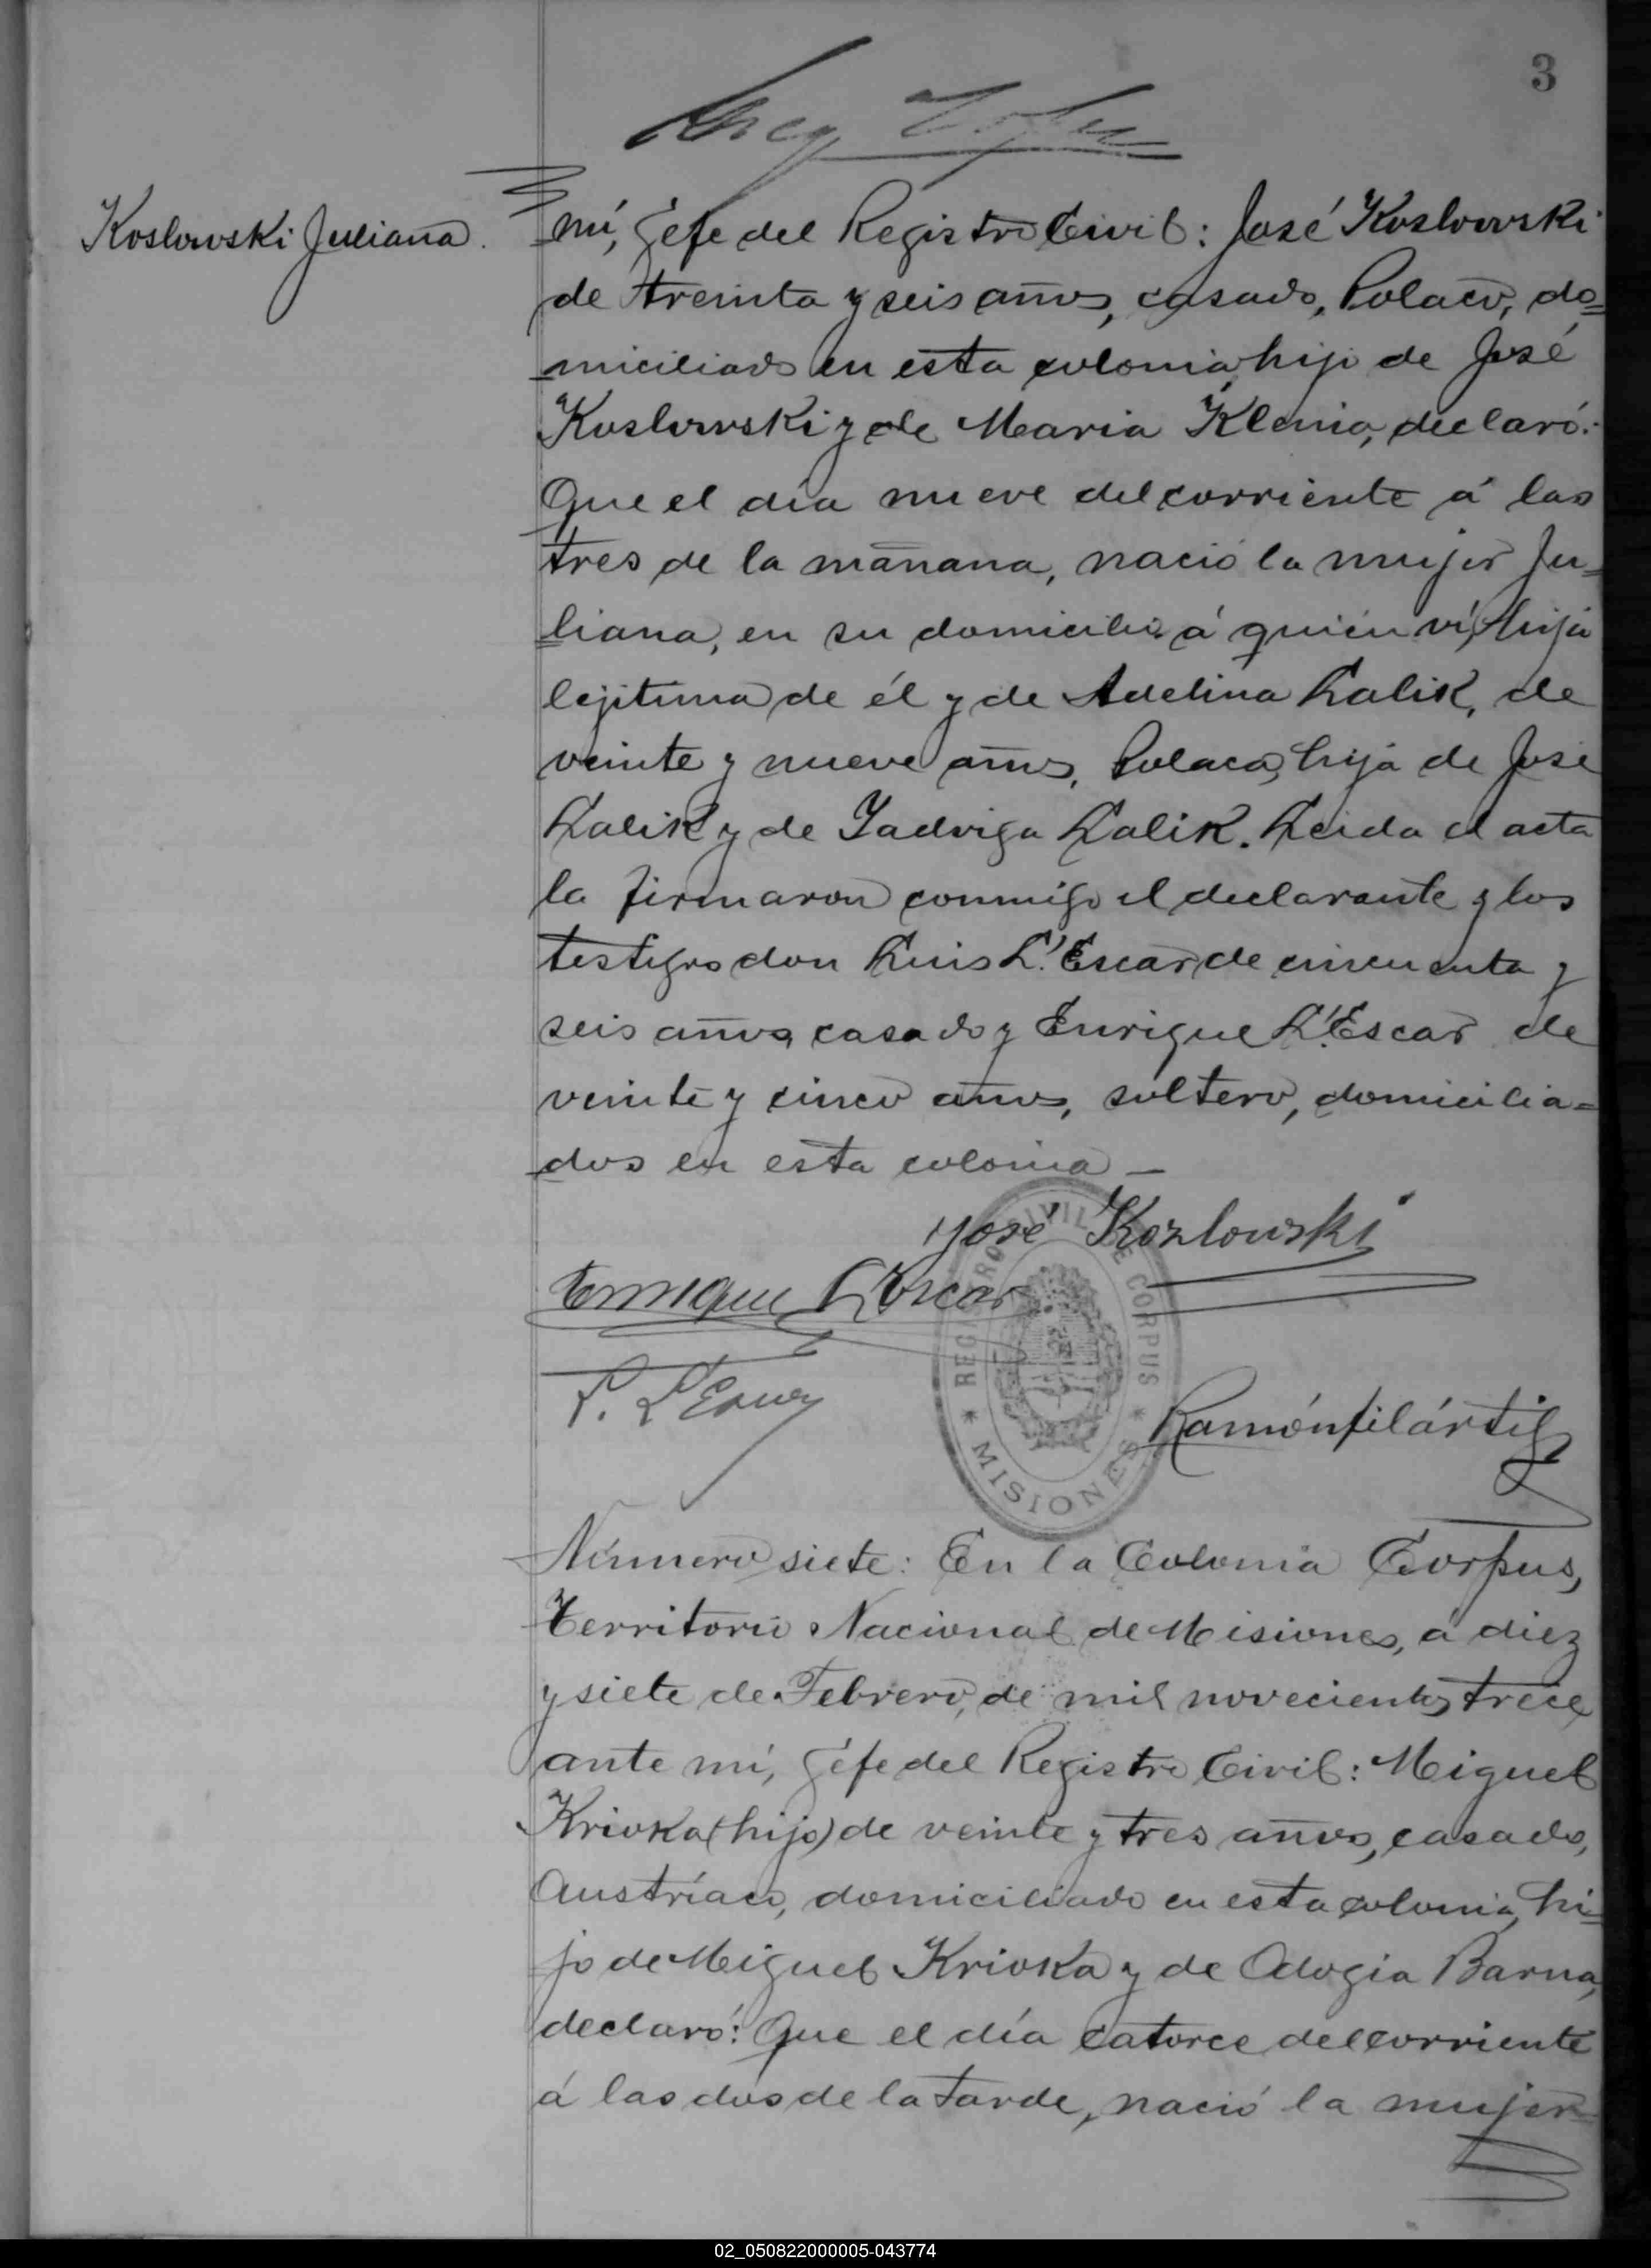 3
Koslowski Juliana.
mí, Jefe del Registro Civil: José Koslowski
de treinta y seis años, casado, Polaco, do=
miciliado en esta colonia, hijo de José
Koslowski y de Maria Klenia, declaró:
Que el día nueve del corriente á las
tres de la mañana, nació la mujer Ju=
liana, en su domicilio, á quién ví, hija
lejitima de él y de Adelina Lalik, de
veinte y nueve años, Polaca, hija de José
Lalik y de Yadviga Lalik. Leida el acta
la firmaron conmigo el declarante y los
testigos don Luis L'Escar de cincuenta y
seis años, casado y Enrique L'Escar de
veinte y cinco años, soltero, domicilia=
dos en esta colonia—
José Kozlowski
Enrique L'Escar
REGISTRO CIVIL DE CORPUS
* MISIONES *
Número siete: En la Colonia Corpus,
Territorio Nacional de Misiones, á diez
y siete de Febrero, de mil novecientos trece,
ante mí, Jefe del Registro Civil: Miguel
Krivka (hijo) de veinte y tres años, casado,
Austríaco, domiciliado en esta colonia, hi=
jo de Miguel Krivka y de Odogia Barna,
declaró: Que el día catorce del corriente
á las dos de la tarde, nació la mujer
02_050822000005-043774